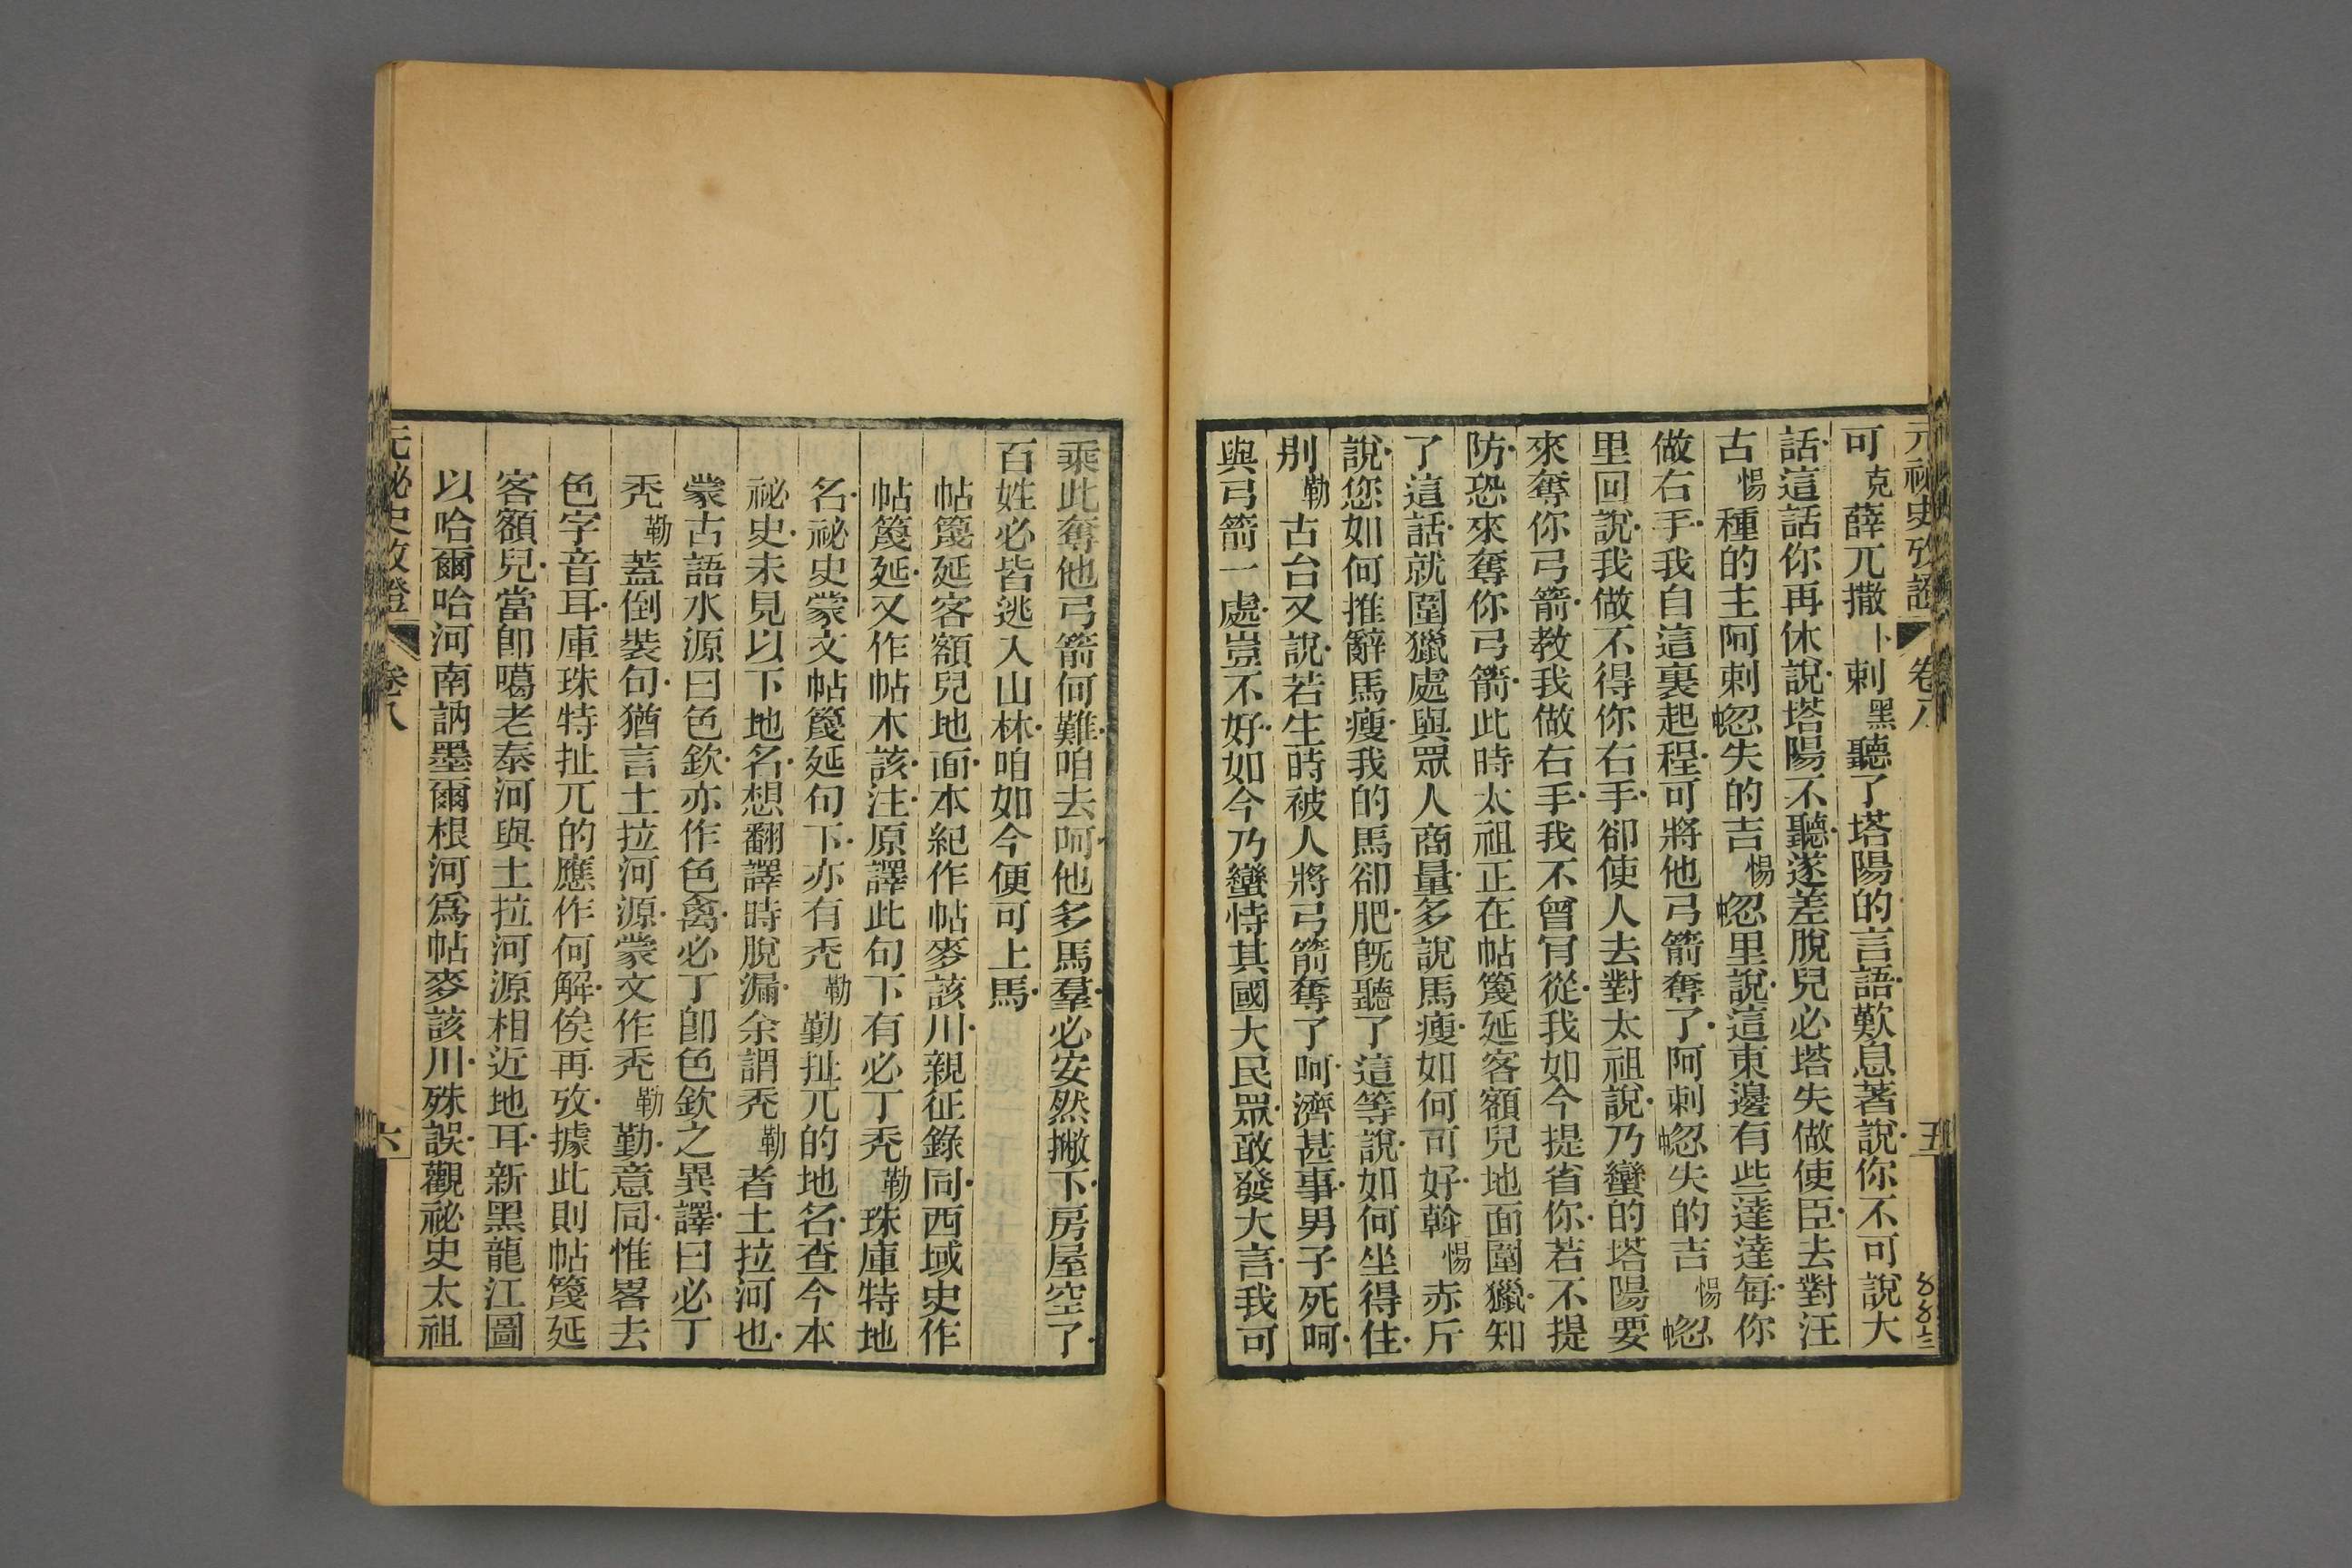 元祕史攷證 卷八 五
可克薛兀撒卜剌黑聽了塔陽的言語歎息著說你不可說大
話這話你再休說塔陽不聽遂差脫兒必塔失做使臣去對汪
古惕種的主阿剌中忽失的吉惕中忽里說這東邊有些達達每你
做右手我自這裏起程可將他弓箭奪了阿剌中忽失的吉惕中忽
里回說我做不得你右手卻使人去對太祖說乃蠻的塔陽要
來奪你弓箭教我做右手我不曾肎從我如今提省你若不提
防恐來奪你弓箭此時太祖正在帖篾延客額兒地面圍獵知
了這話就圍獵處與眾人商量多說馬瘦如何可好斡惕赤斤
說您如何推辭馬瘦我的馬卻肥旣聽了這等說如何坐得住
別勒古台又說若生時被人將弓箭奪了呵濟甚事男子死呵
與弓箭一處豈不好如今乃蠻恃其國大民眾敢發大言我可
乘此奪他弓箭何難咱去呵他多馬羣必安然撇下房屋空了
百姓必皆逃入山林咱如今便可上馬
帖篾延客額兒地面本紀作帖麥該川親征錄同西域史作
帖篾延又作帖木該注原譯此句下有必丁禿勒珠庫特地
名祕史蒙文帖篾延句下亦有禿勒勤扯兀的地名查今本
祕史未見以下地名想翻譯時脫漏余謂禿勒者土拉河也
蒙古語水源曰色欽亦作色禽必丁卽色欽之異譯曰必丁
禿勒蓋倒裝句猶言土拉河源蒙文作禿勒勤意同惟畧去
色字音耳庫珠特扯兀的應作何解俟再攷據此則帖篾延
客額兒當卽噶老泰河與土拉河源相近地耳新黑龍江圖
以哈爾哈河南訥墨爾根河爲帖麥該川殊誤觀祕史太祖
元祕史攷證 卷八 六